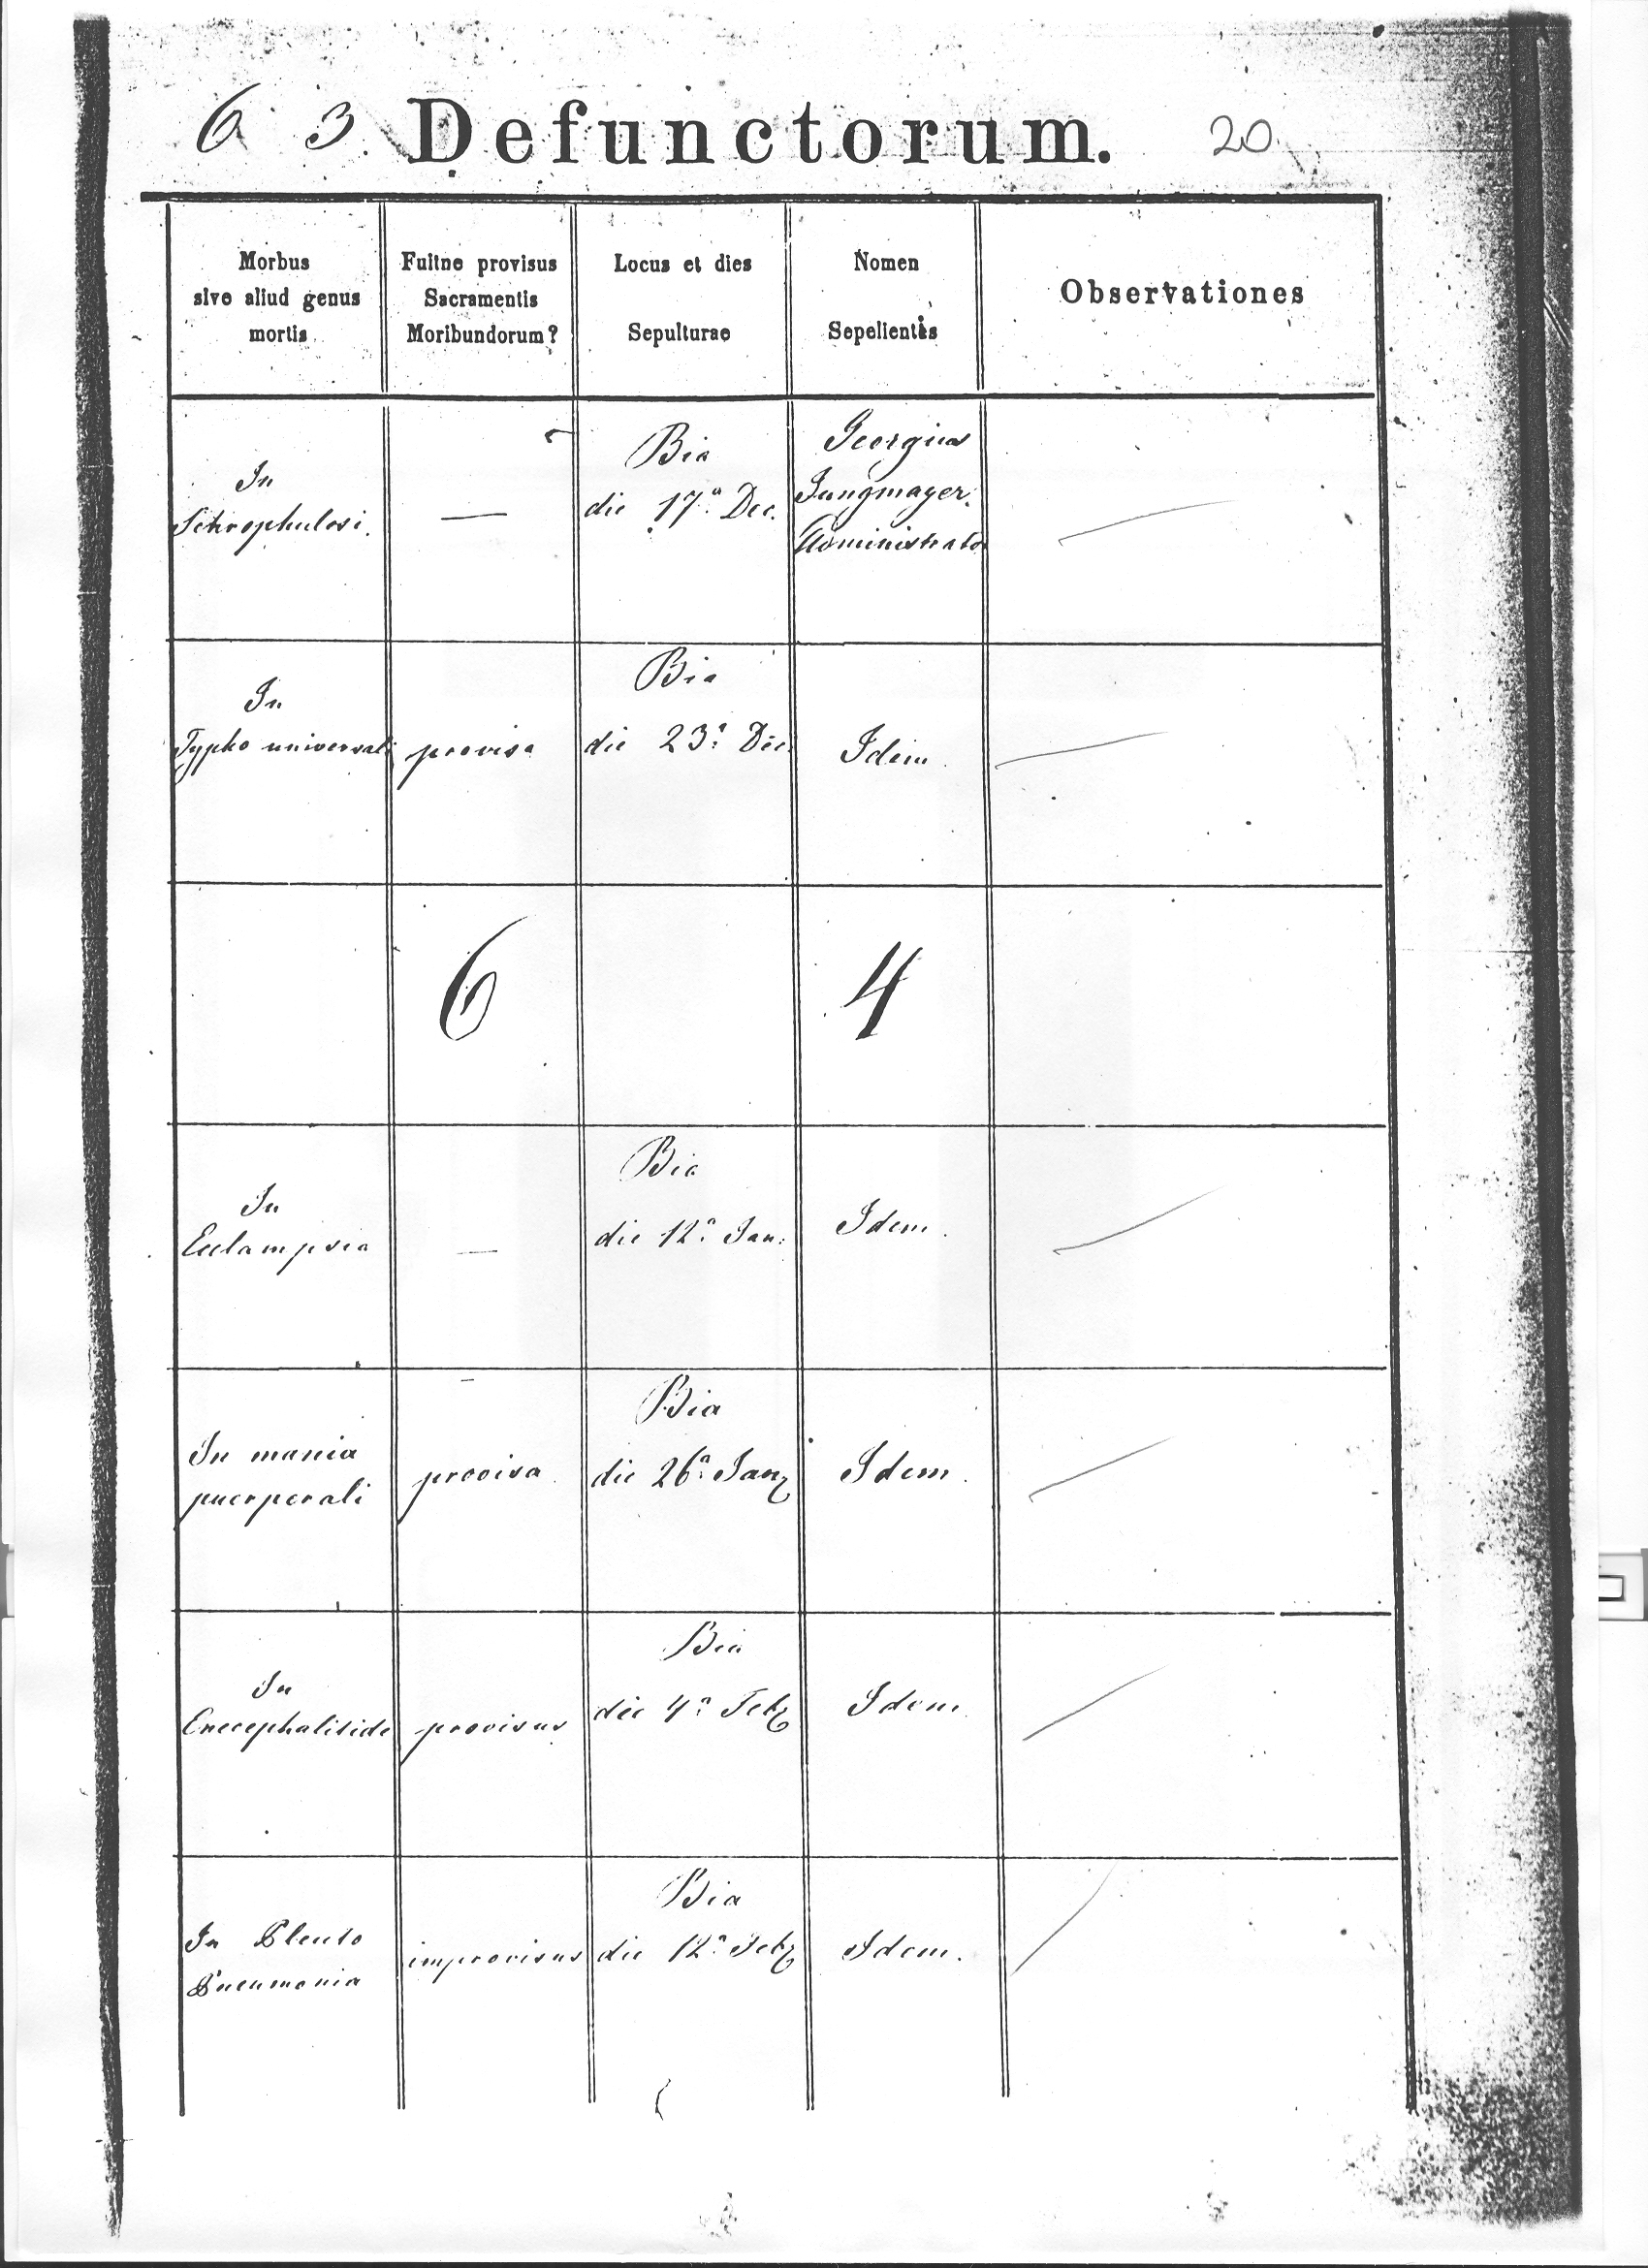 6 3 Defunctorum. 20
Morbus
sive aliud genus
mortis
Fuitne provisus
Sacramentis
Moribundorum?
Locus et dies
Sepulturae
Nomen
Sepelientis
Observationes
In
Schrophulosi.
—
Bia
die 17ª Dec.
Georgius
Jungmayer.
Administrator
In
Typho universali
provisa
Bia
die 23ª Dec.
Idem.
6
4
In
Eclampsia
—
Bia
die 12ª Jan:
Idem.
In mania
puerperali
provisa
Bia
die 26ª Jan
Idem.
In
Encephalitide
provisus
Bia
die 4ª Feb
Idem.
In Pleuro
Pneumonia
improvisus
Bia
die 12ª Feb
Idem.